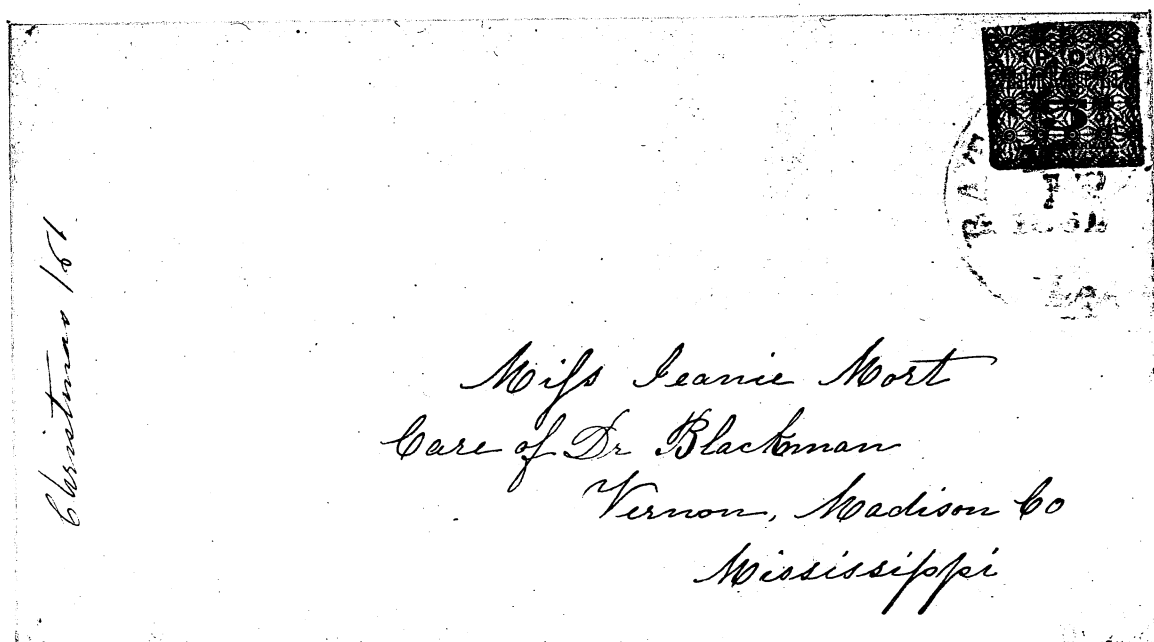 P.O.
5
BAT
1861
LA
Christmas /61
Miſs Jeanie Mort
Care of Dr Blackman
Vernon, Madison Co
Mississippi